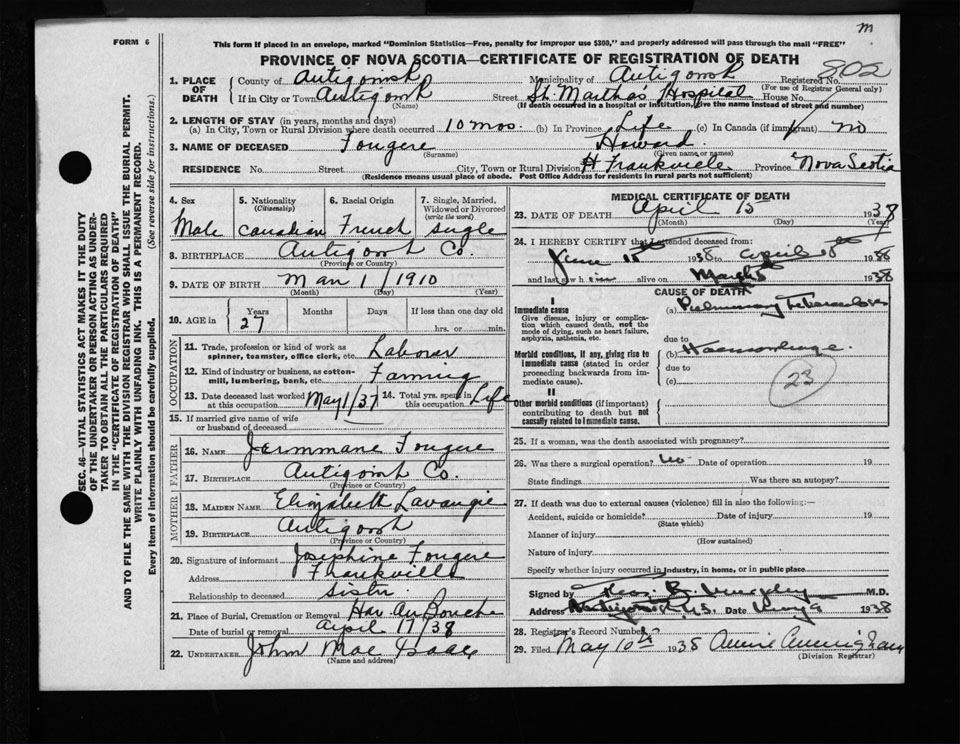 m
FORM 6
This form if placed in an envelope, marked "Dominion Statistics—Free, penalty for improper use $300," and properly addressed will pass through the mail "FREE"
PROVINCE OF NOVA SCOTIA—CERTIFICATE OF REGISTRATION OF DEATH
1. PLACE OF DEATH County of Antigonish Municipality of Antigonish Registered No. 802
(For use of Registrar General only)
If in City or Town Antigonish Street St. Martha's Hospital House No.
(Name) (If death occurred in a hospital or institution, give the name instead of street and number)
2. LENGTH OF STAY (in years, months and days)
(a) In City, Town or Rural Division where death occurred 10 mos. (b) In Province Life (c) In Canada (if immigrant) no
3. NAME OF DECEASED Fougere Howard
(Surname) (Given name or names)
RESIDENCE No. Street City, Town or Rural Division Frankville Province Nova Scotia
(Residence means usual place of abode. Post Office Address for residents in rural parts not sufficient)
4. Sex Male
5. Nationality (Citizenship) Canadian
6. Racial Origin French
7. Single, Married, Widowed or Divorced (write the word) single
8. BIRTHPLACE Antigonish Co.
(Province or Country)
9. DATE OF BIRTH Mar 1 / 1910
(Month) (Day) (Year)
10. AGE in Years Months Days If less than one day old
27 hrs. or min.
OCCUPATION
11. Trade, profession or kind of work as spinner, teamster, office clerk, etc. Laborer
12. Kind of industry or business, as cotton-mill, lumbering, bank, etc. Farming
13. Date deceased last worked at this occupation May 1/37 14. Total yrs. spent in this occupation Life
15. If married give name of wife or husband of deceased
FATHER
16. NAME Jermmane Fougere
17. BIRTHPLACE Antigonish Co.
(Province or Country)
MOTHER
18. MAIDEN NAME Elizabeth Lavangie
19. BIRTHPLACE Antigonish
(Province or Country)
20. Signature of informant Josephine Fougere
Address Frankville
Relationship to deceased Sister
21. Place of Burial, Cremation or Removal Hav. Au Bouche
Date of burial or removal April 17/38
22. UNDERTAKER John Mac Isaac
(Name and address)
MEDICAL CERTIFICATE OF DEATH
23. DATE OF DEATH April 15 1938
(Month) (Day) (Year)
24. I HEREBY CERTIFY that I attended deceased from:
June 15th 1938 to April 1938
and last saw h im alive on 1938
CAUSE OF DEATH
I
Immediate cause (a) Pulmonary Tuberculosis
Give disease, injury or complication which caused death, not the mode of dying, such as heart failure, asphyxia, asthenia, etc.
due to
Morbid conditions, if any, giving rise to immediate cause (stated in order proceeding backwards from immediate cause). (b) Haemorrhage.
due to
(c) 23
II
Other morbid conditions (if important) contributing to death but not causally related to immediate cause.
25. If a woman, was the death associated with pregnancy?
26. Was there a surgical operation? no Date of operation 19
State findings Was there an autopsy?
27. If death was due to external causes (violence) fill in also the following:—
Accident, suicide or homicide? Date of injury 19
(State which)
Manner of injury
(How sustained)
Nature of injury
Specify whether injury occurred in industry, in home, or in public place
Signed by M.D.
Address Antigonish N.S. Date May 9 1938
28. Registrar's Record Number
29. Filed May 10th 1938 Annie Cunningham
(Division Registrar)
SEC. 46—VITAL STATISTICS ACT MAKES IT THE DUTY
OF THE UNDERTAKER OR PERSON ACTING AS UNDERTAKER TO OBTAIN ALL THE PARTICULARS REQUIRED
IN THE "CERTIFICATE OF REGISTRATION OF DEATH"
AND TO FILE THE SAME WITH THE DIVISION REGISTRAR WHO SHALL ISSUE THE BURIAL PERMIT.
WRITE PLAINLY WITH UNFADING INK. THIS IS A PERMANENT RECORD.
Every item of information should be carefully supplied. (See reverse side for instructions.)